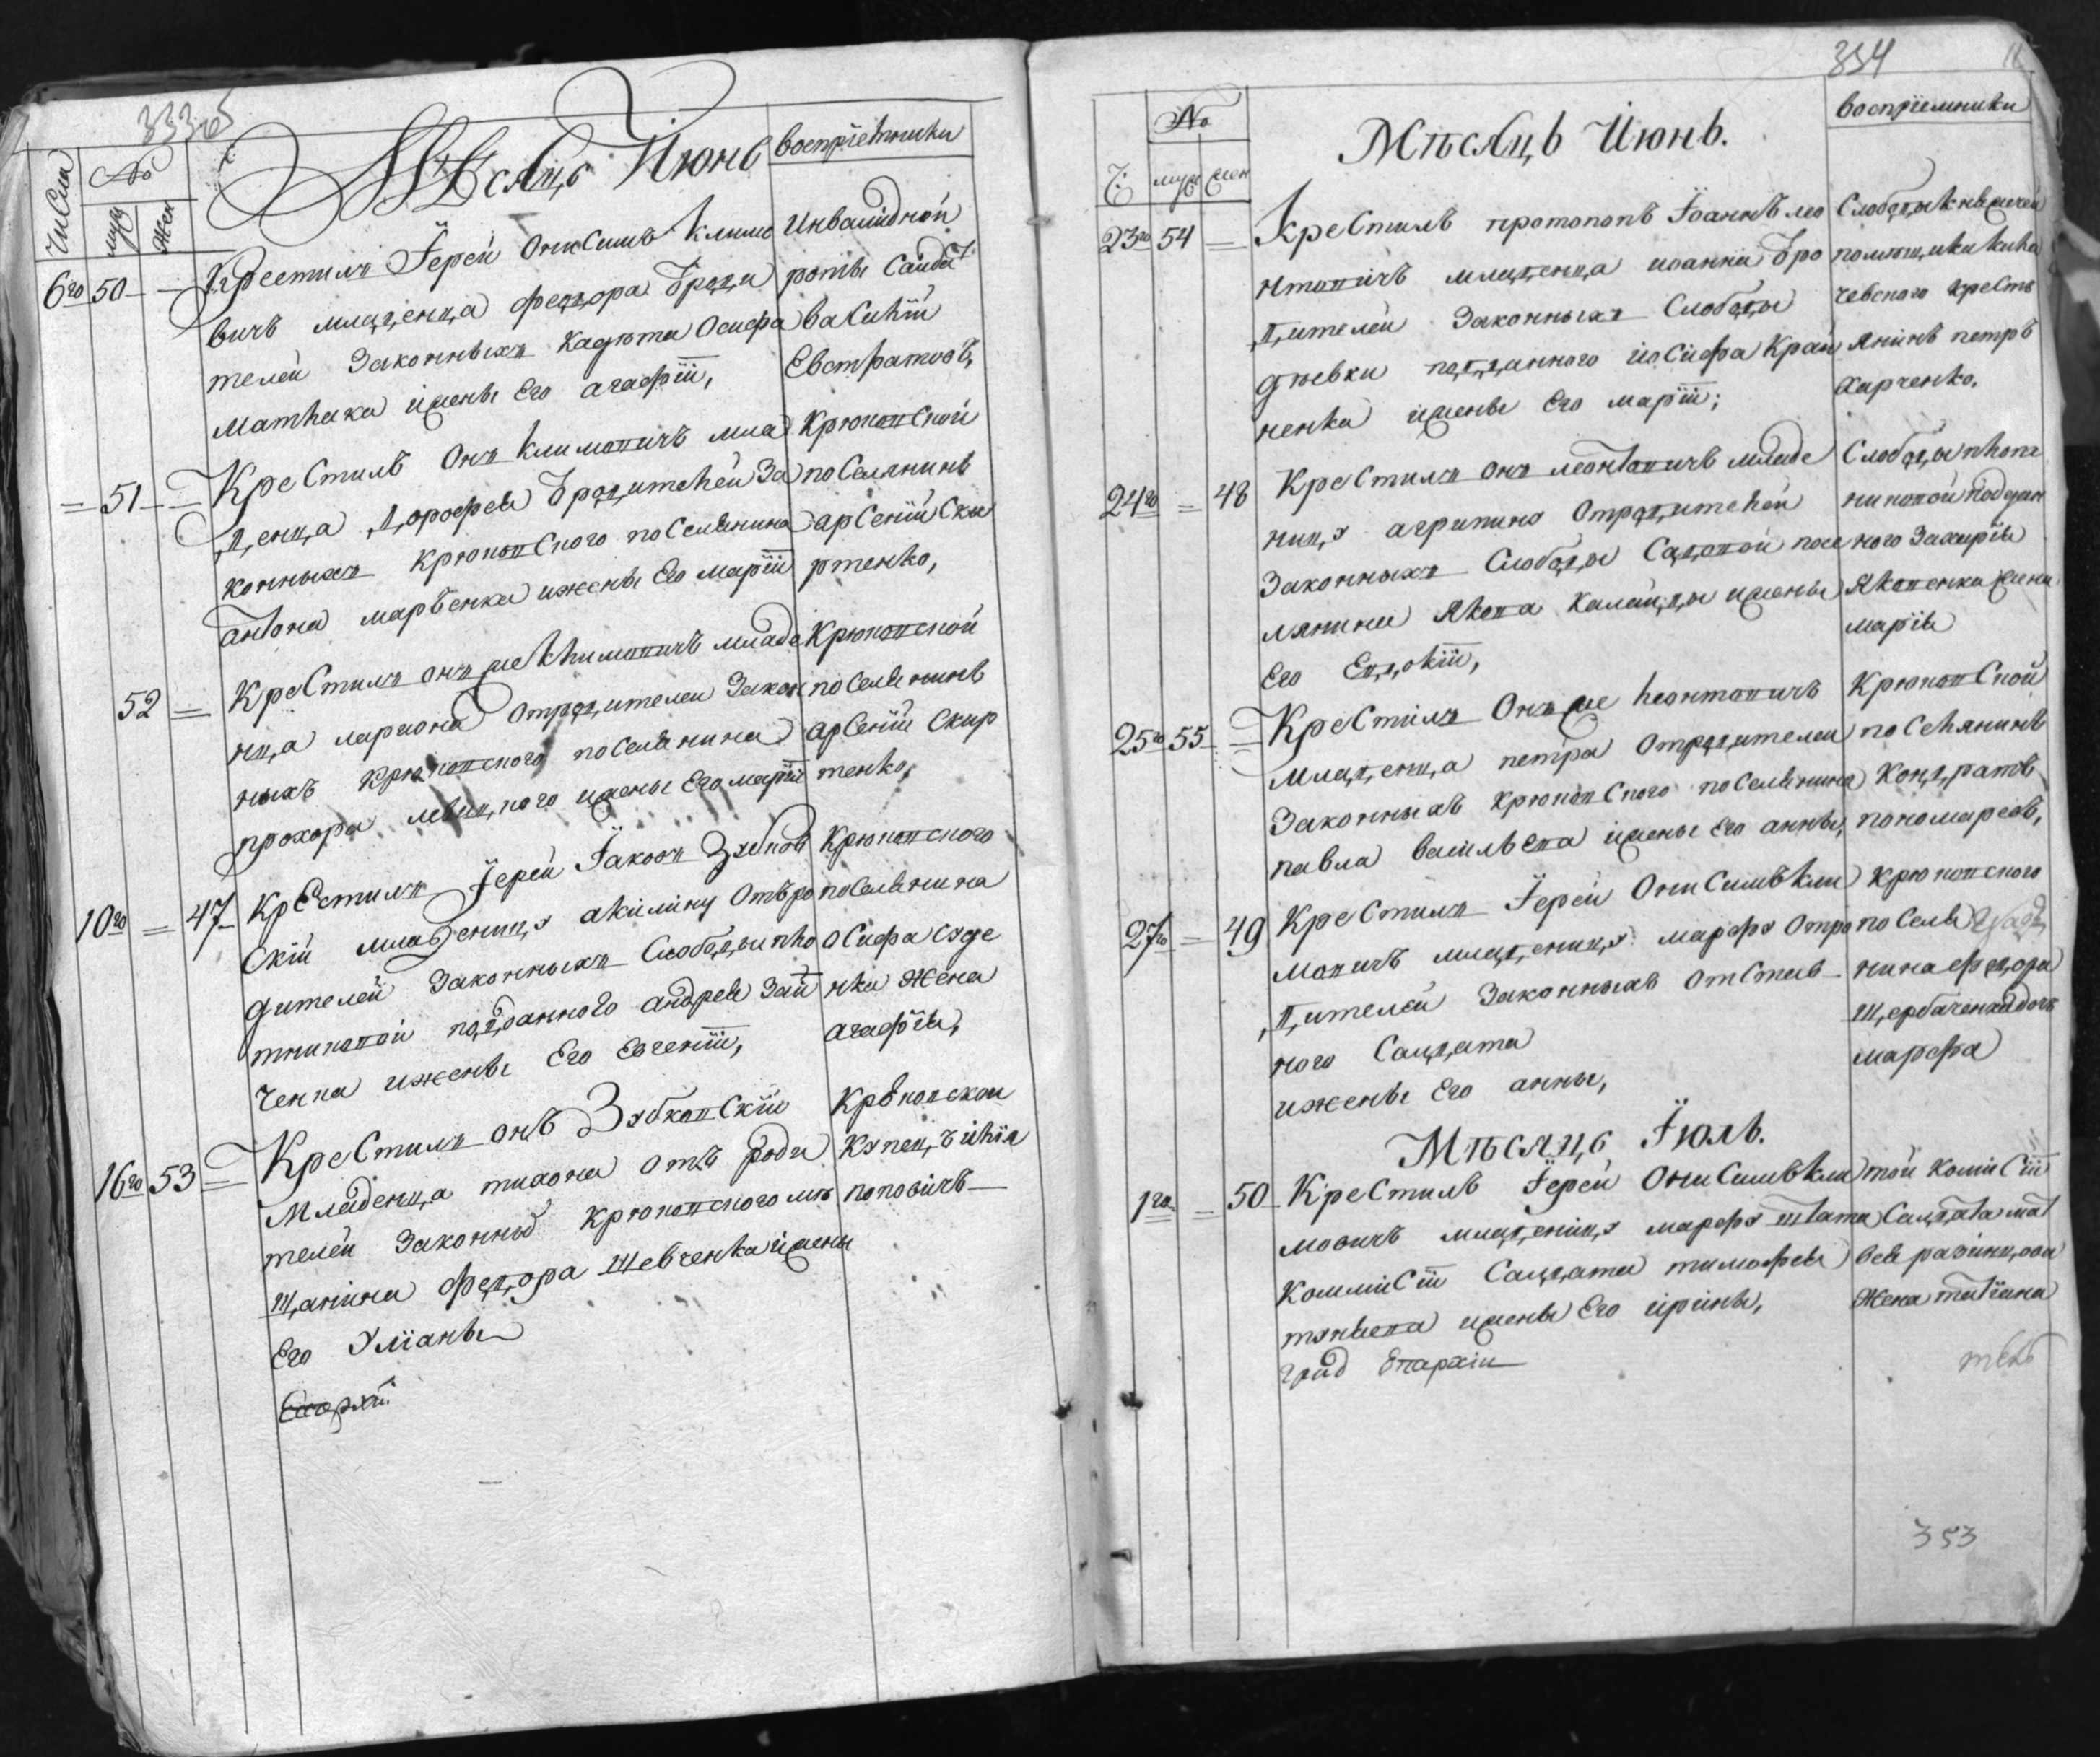 333об
Числа
№
муж
Жен
Мѣсяцъ Июнь
воспріемники
6го 50 — — Крестилъ Іерей Онисимъ Климо
вичъ младенца федора ѿ роди
телей Законныхъ Кадюта Осифа
матнака ижены Его агафіи,
Инвалидной
роты Салдат
ваСилій
Евстратовъ,
= 51 — = КреСтилъ Онъ климовичъ мла
денца дорофея ѿ родителей За
конныхъ крюковСкого поСелянина
антона марченка ижены Его маріи
Крюковской
поСелянинъ
арСеній Ски
ртенко,
52 = КреСтилъ онъ же климовичъ младе
нца лариона отродителей Закон
ныхъ крюковского поСелянина
прохора ижены Его маріи
Крюковской
поСелянинъ
арСеній Скир
тенко,
10го = 47 КрЕстилъ Іерей Іаковъ Зубков
Скій младеницу акилину Отъ ро
дителей Законныхъ Слободы пло
тниковой подданного андрея Зай
ченка ижены Его Евгеніи,
Крюковского
поСелянина
осифа
нка Жена
агафія,
16го 53 = КреСтилъ онъ ЗубковСкій
Младенца тихона отъ роди
телей Законных Крюковского мѣ
щанина федора Шевченка ижены
Его Уліаны
Епархіи
Крюковскои
Купец, илія
поповичъ —
334
№
Ч:
муж
жен
Мѣсяцъ Июнь.
воспріемники
23го 54 — КреСтилъ протопопъ Іоаннъ лео
нтовичъ младенца иоанна ѿ ро
дителей Законныхъ Слободы
дѣевки подданного иосифа Край
ненка ижены Его маріи;
Слободы
чевского креСть
янинъ петръ
Харченко,
24го = 48 КреСтилъ онъ леонтовичъ младе
ницу агрипину Отродителей
Законныхъ Слободы Садовой посе
лянина Якова Калайды ижены
Его Евдокіи,
Слободы плот
никовой поддан
ного Захарія
Яковенка жена
марія
25го 55 = КреСтилъ Онъ же леонтовичъ
младенца петра Отродителей
Законныхъ крюковСкого поСелянина
павла васильева ижены Его анны,
КрюковСкой
поСелянинъ
Кондратъ
пономаревъ,
27го = 49 КреСтилъ Іерей ОниСимъ кли
мовичъ младеницу марфу Отро
дителей Законныхъ отСтав
ного Салдата
ижены Его анны,
Крюковского
поСеля
нина федора
Щербаченка дочь
марфа
Мѣсяцъ Іюль.
1го = 50 КреСтилъ Іерей ОниСимъ кли
мовичъ младеницу марфу штата
КоммиСіи Салдата тимофея
ижены Его ирины,
Град Епархіи
той комиСіи
Салдата мат
вея
Жена татіана
353